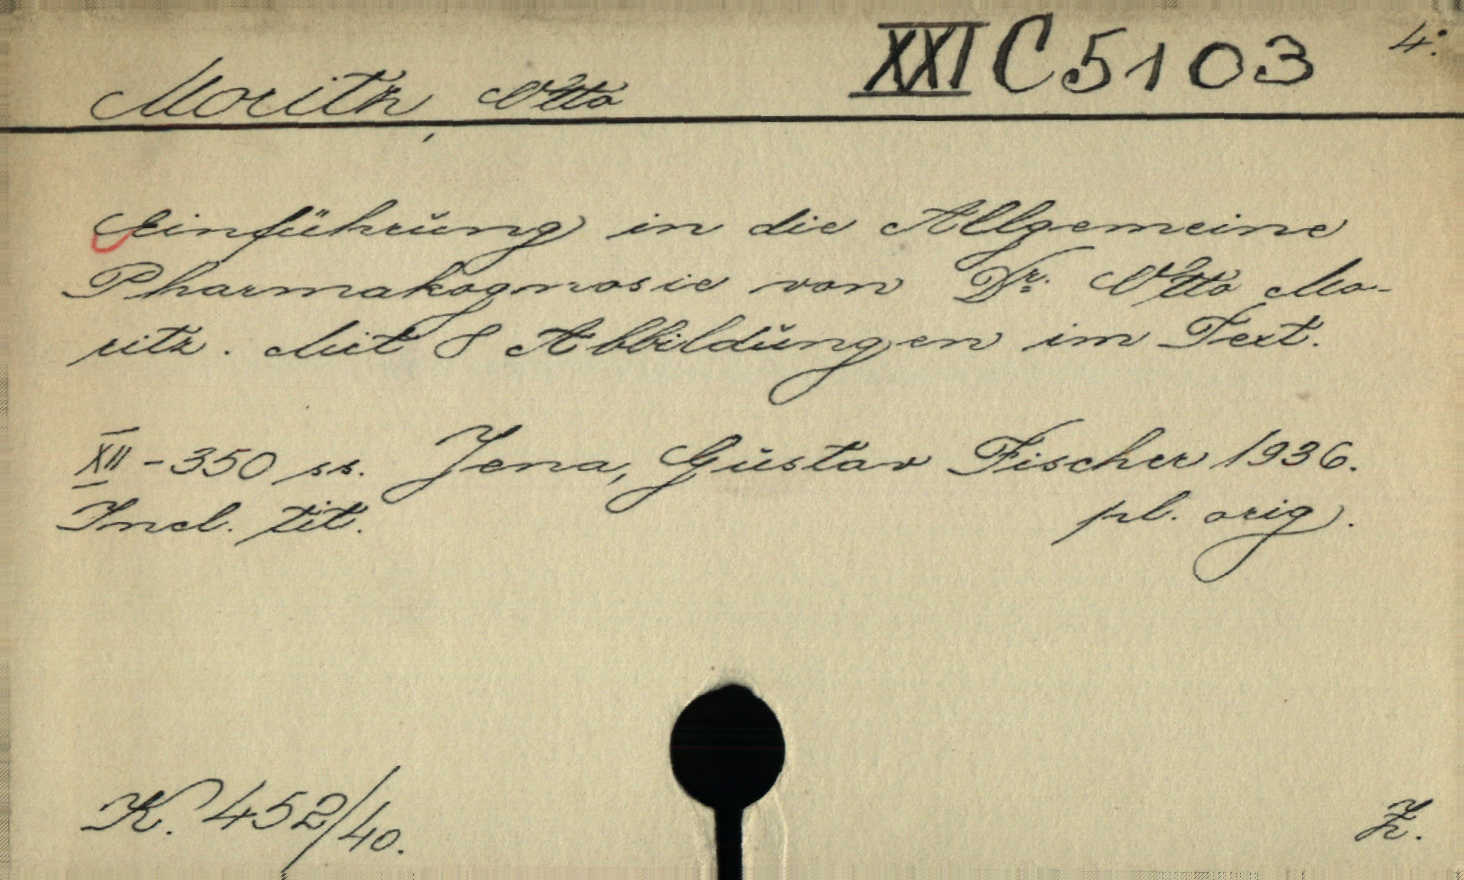 XXI C 5103 4°.
Moritz, Otto
Einführung in die Allgemeine
Pharmakognosie von Dr. Otto Mo-
ritz. Mit 8 Abbildungen im Text.
XII - 350 ss. Jena, Gustav Fischer 1936.
Incl. tit. pl. orig.
K. 452/40. Z.